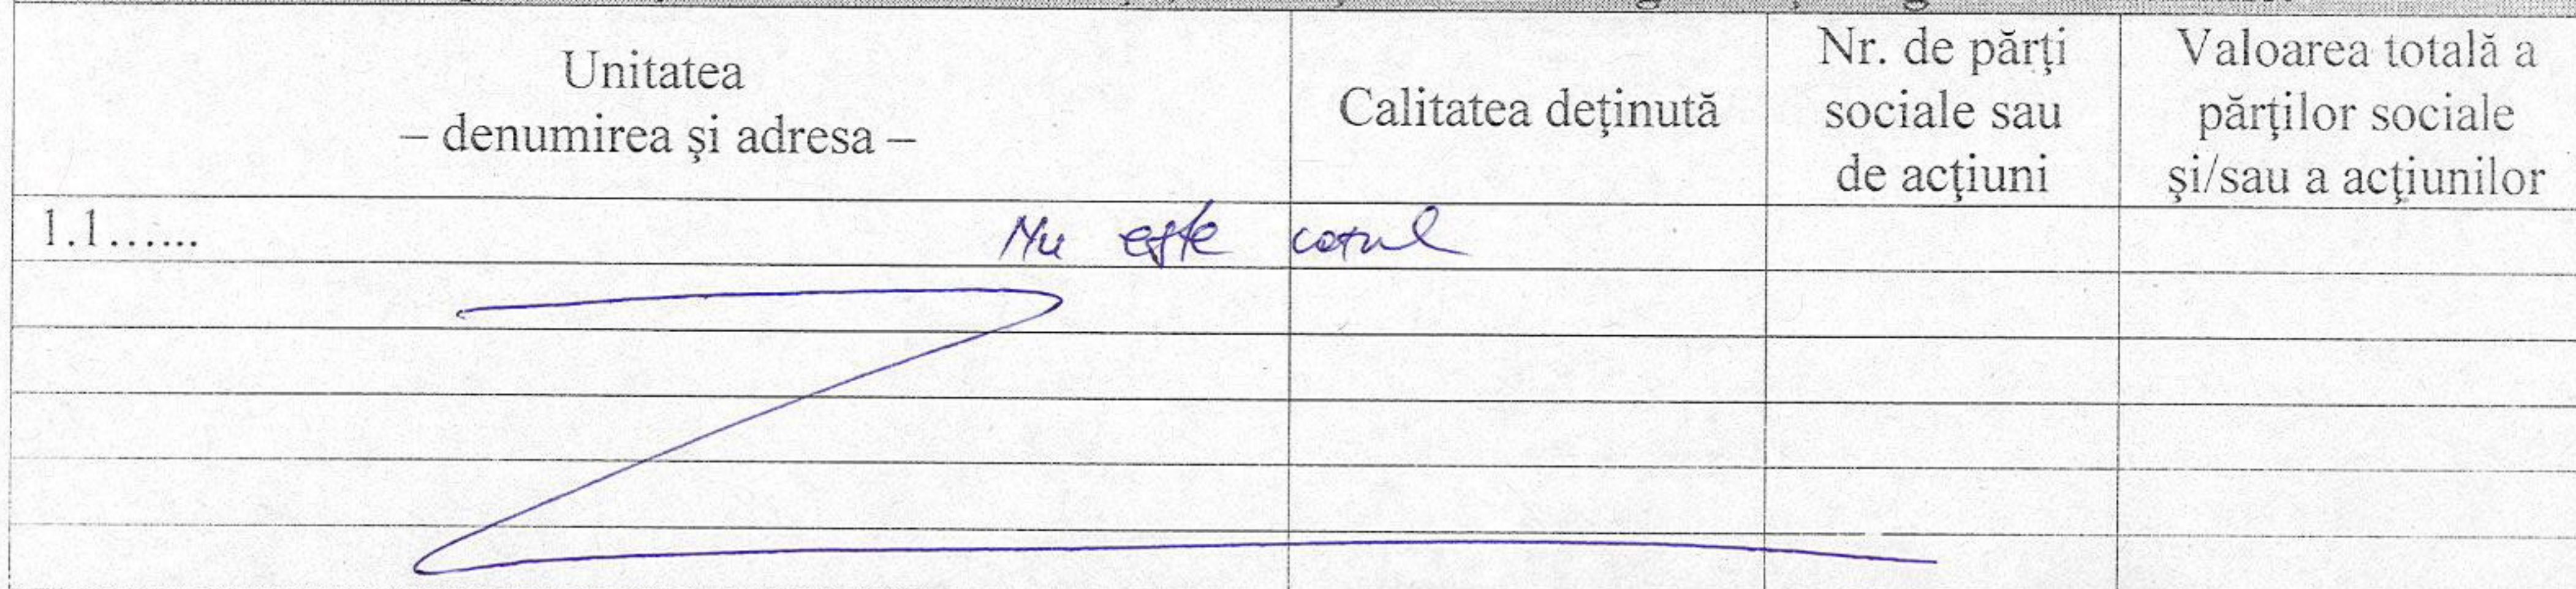 Unitatea
– denumirea şi adresa –
Calitatea deţinută
Nr. de părţi
sociale sau
de acţiuni
Valoarea totală a
părţilor sociale
şi/sau a acţiunilor
1.1......
Nu este cazul